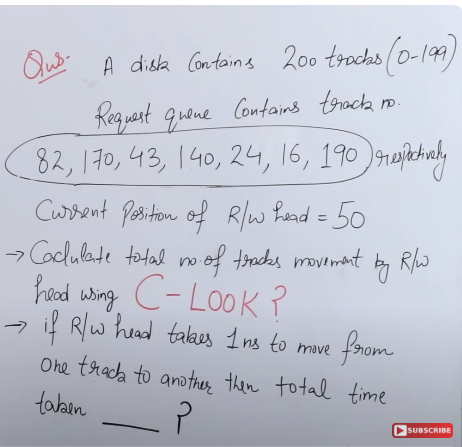 Qus. A disk Contains 200 tracks (0-199)
Request queue Contains track no.
82, 170, 43, 140, 24, 16, 190 respectively
Current Position of R/W head = 50
→ Caclulate total no. of tracks movement by R/W
head using C-LOOK?
→ if R/W head takes 1ns to move from
one track to another then total time
taken ___ ?
SUBSCRIBE